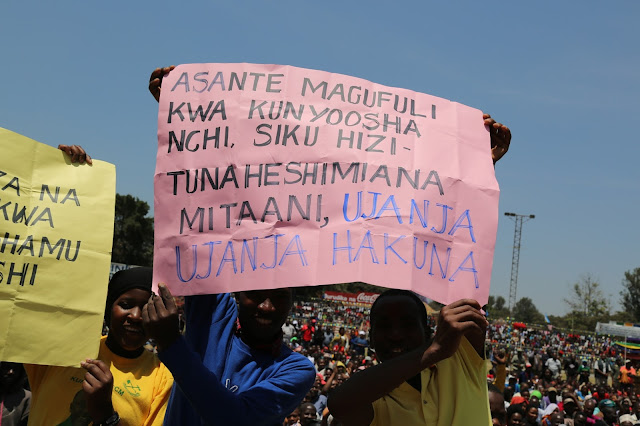 ASANTE MAGUFULI
KWA KUNYOOSHA
NCHI, SIKU HIZI -
TUNAHESHIMIANA
MITAANI, UJANJA
UJANJA HAKUNA
ZA NA
KWA
HAMU
SHI